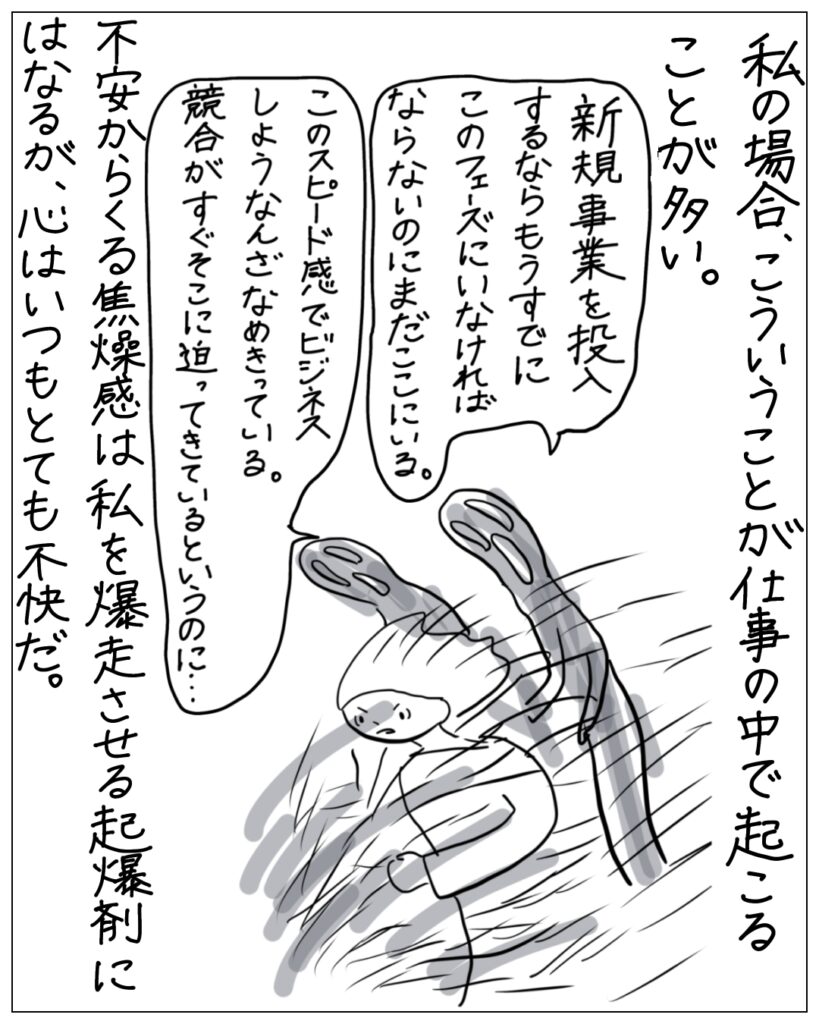 私の場合、こういうことが仕事の中で起こる
ことが多い。
新規事業を投入
するならもうすでに
このフェーズにいなければ
ならないのにまだここにいる。
このスピード感でビジネス
しようなんざなめきっている。
競合がすぐそこに迫ってきているというのに…
不安からくる焦燥感は私を爆走させる起爆剤に
はなるが、心はいつもとても不快だ。